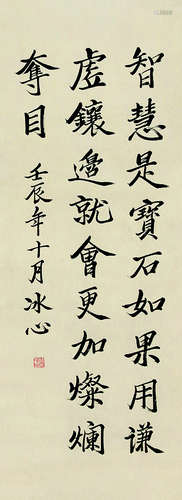 智慧是寶石如果用谦
虚鑲邊就會更加燦爛
奪目
壬辰年十月冰心